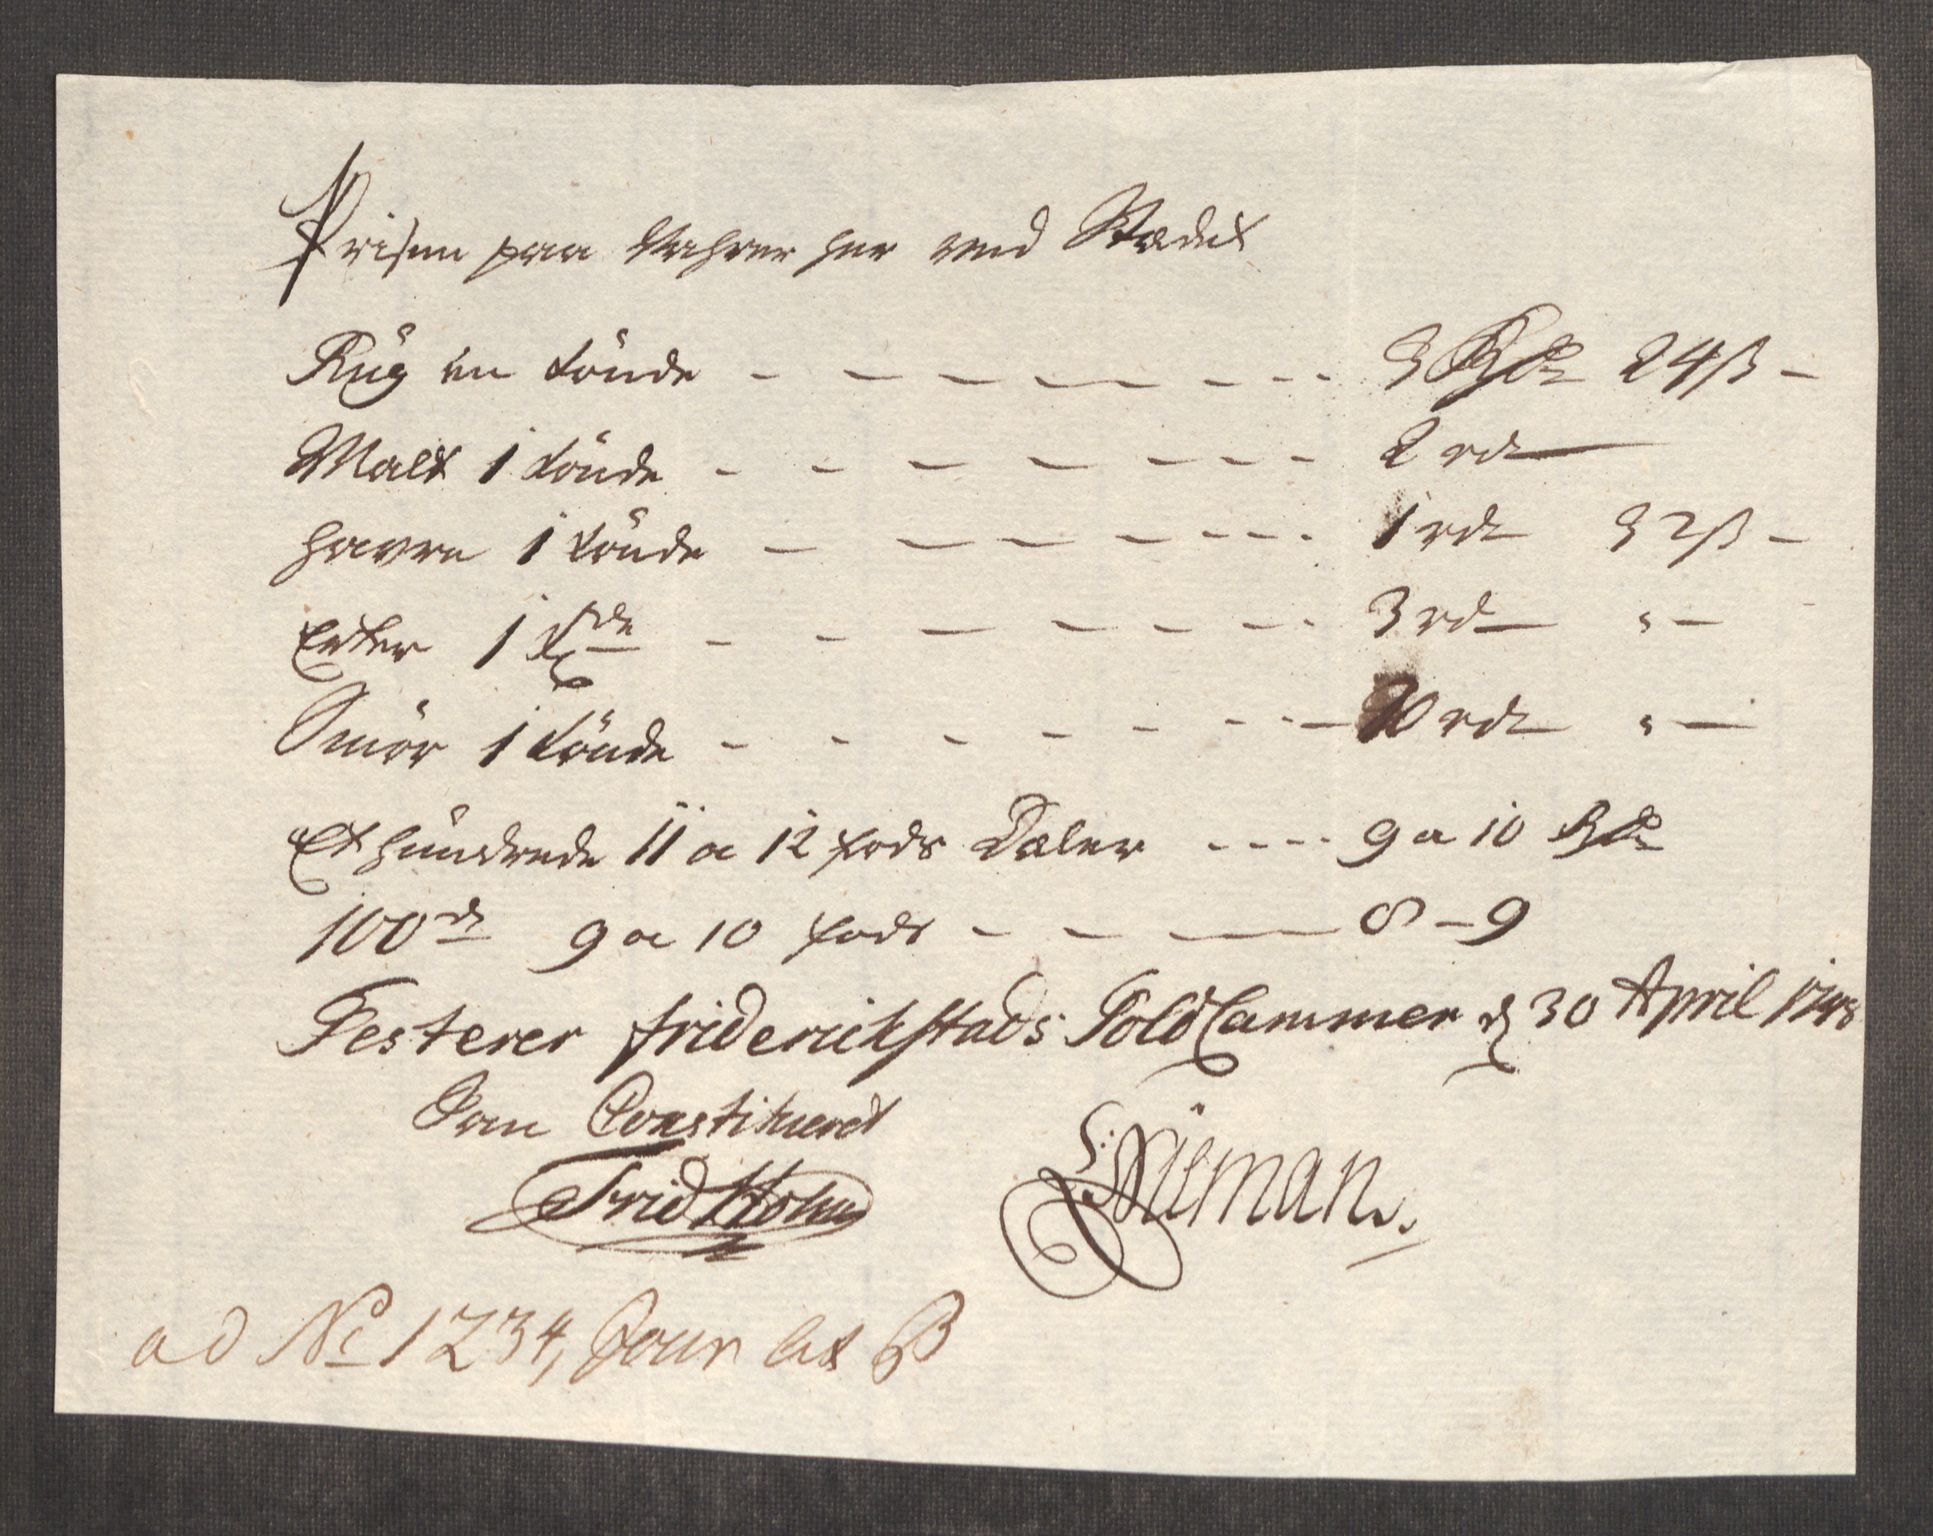 Prisen paa Vahrer her ved Stædet
Rüg en tönde - - - - - - - 3 Rdr 24 ß -
Malt 1 tönde - - - - - - - 2 rdr
Havre 1 tönde - - - - - - - 1 rdr 32 ß -
Erter 1 tde - - - - - - - 3 rdr " -
Smör 1 tönde - - - - - - - 10 rdr " -
Et hündrede 11 a 12 fods Dæler - - - - 9 a 10 Rdr
100de 9 a 10 fods - - - 8 - 9
Testerer friderichstads Told Cammer d 30 April 1748
Som Constitueret
Frid Holm S: Nieman.
ad No 1234, Jour lit B